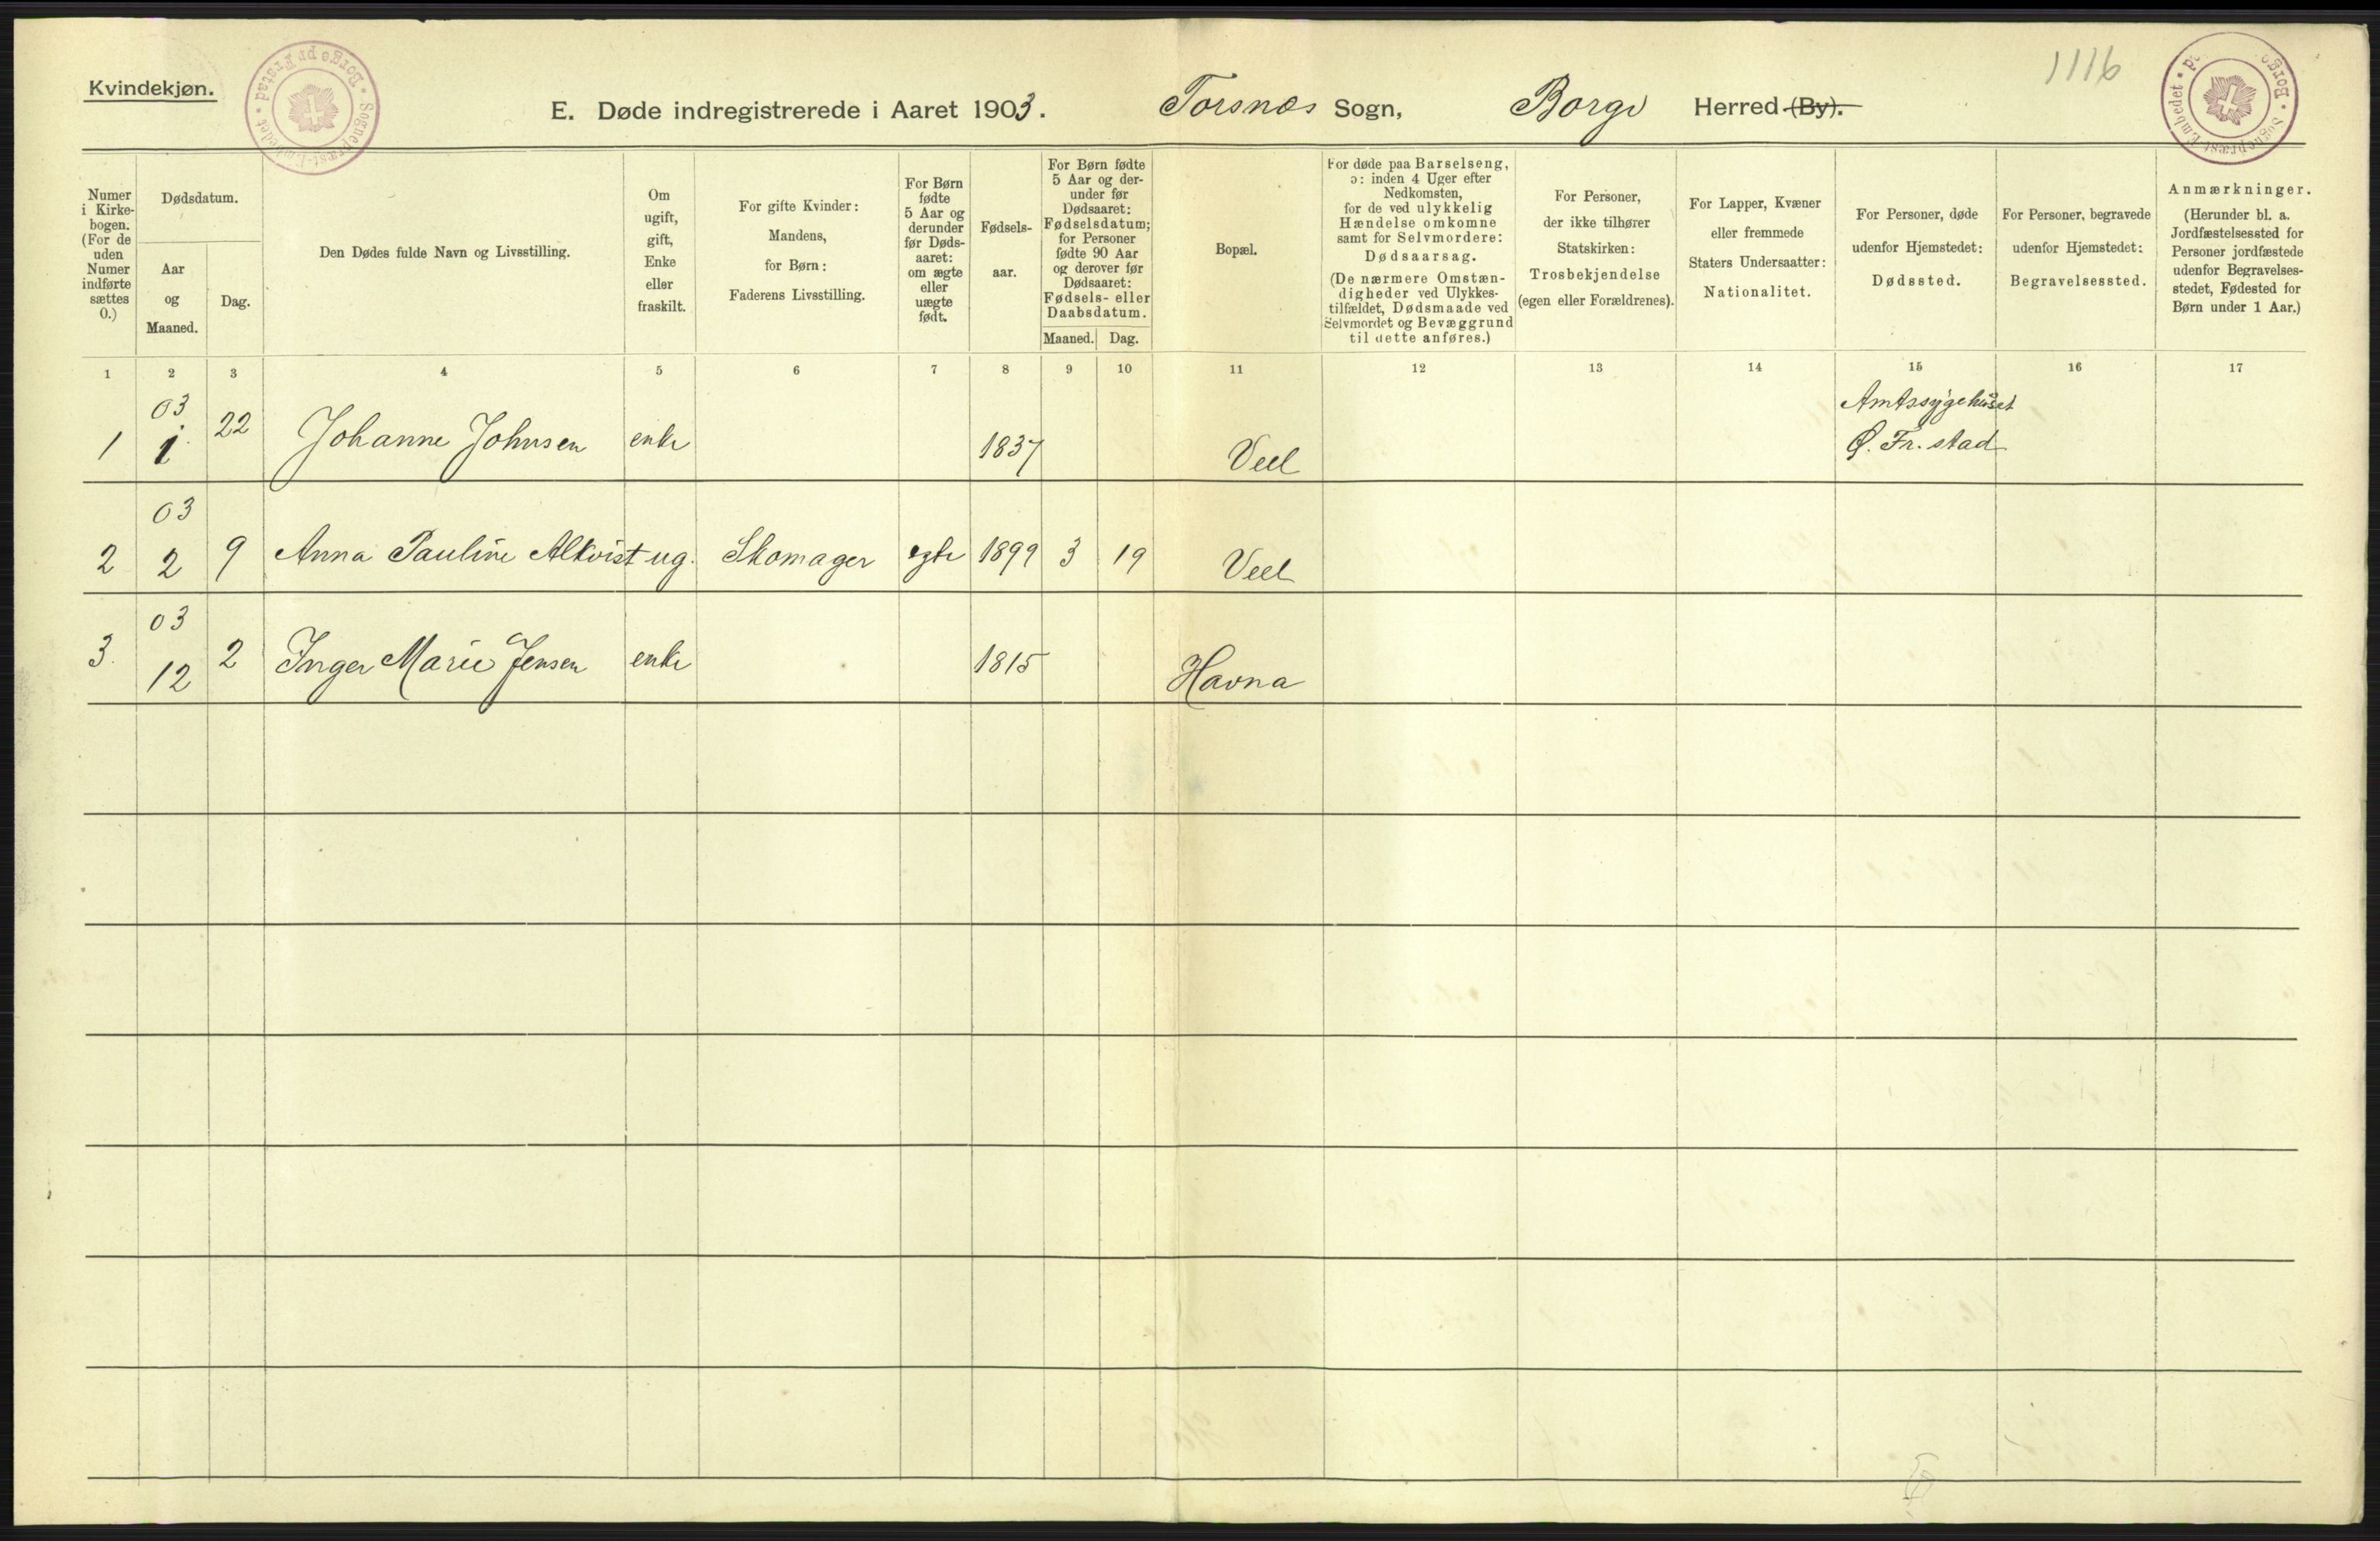 Kvindekjøn.
Sognepræst-Embedet • Borge pr Frstad •
E. Døde indregistrerede i Aaret 1903. Torsnæs Sogn, Borge Herred (By).
1116
Numer i Kirkebogen. (For de uden Numer indførte sættes 0.)
Dødsdatum.
Aar og Maaned.
Dag.
Den Dødes fulde Navn og Livsstilling.
Om ugift, gift, Enke eller fraskilt.
For gifte Kvinder: Mandens, for Børn: Faderens Livsstilling.
For Børn fødte 5 Aar og derunder før Dødsaaret: om ægte eller uægte født.
Fødselsaar.
For Børn fødte 5 Aar og derunder før Dødsaaret: Fødselsdatum; for Personer fødte 90 Aar og derover før Dødsaaret: Fødsels- eller Daabsdatum.
Maaned. Dag.
Bopæl.
For døde paa Barselseng, ɔ: inden 4 Uger efter Nedkomsten, for de ved ulykkelig Hændelse omkomne samt for Selvmordere: Dødsaarsag. (De nærmere Omstændigheder ved Ulykkestilfældet, Dødsmaade ved Selvmordet og Bevæggrund til dette anføres.)
For Personer, der ikke tilhører Statskirken: Trosbekjendelse (egen eller Forældrenes).
For Lapper, Kvæner eller fremmede Staters Undersaatter: Nationalitet.
For Personer, døde udenfor Hjemstedet: Dødssted.
For Personer, begravede udenfor Hjemstedet: Begravelsessted.
Anmærkninger. (Herunder bl. a. Jordfæstelsessted for Personer jordfæstede udenfor Begravelsesstedet, Fødested for Børn under 1 Aar.)
1 2 3 4 5 6 7 8 9 10 11 12 13 14 15 16 17
1 03 1 22 Johanne Johnsen enke 1837 Veel Amtssygehuset Ø. Fr.stad
2 03 2 9 Anna Pauline Alkvist ug. Skomager egte 1899 3 19 Veel
3. 03 12 2 Inger Marie Jensen enke 1815 Havna